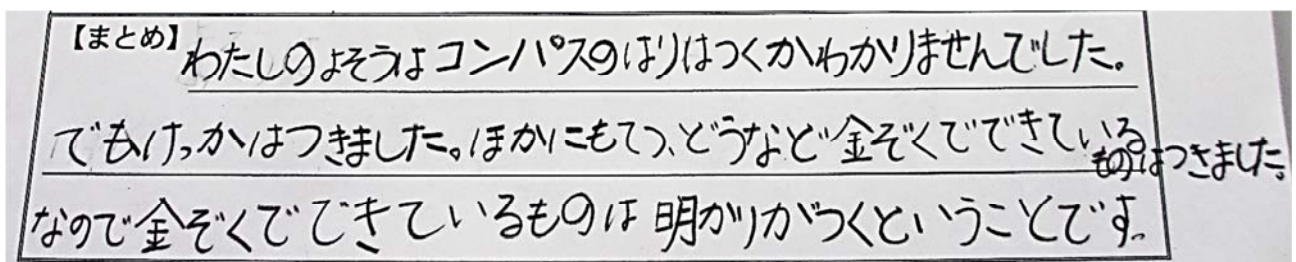 【まとめ】わたしのよそうはコンパスのはりはつくかわかりませんでした。
でもけっかはつきました。ほかにもてつ、どうなど金ぞくでできているものはつきました。
なので金ぞくでできているものは明かりがつくということです。